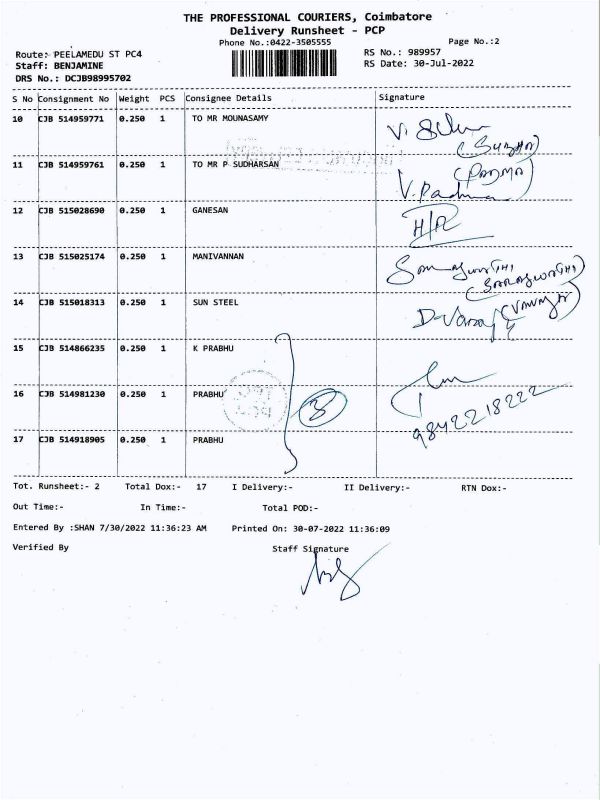 THE PROFESSIONAL COURIERS, Coimbatore
Delivery Runsheet - PCP
Phone No.:0422-3505555 Page No.:2
Route: PEELAMEDU ST PC4 RS No.: 989957
Staff: BENJAMINE RS Date: 30-Jul-2022
DRS No.: DCJB98995702
S No Consignment No Weight PCS Consignee Details Signature
10 CJB 514959771 0.250 1 TO MR MOUNASAMY
11 CJB 514959761 0.250 1 TO MR P SUDHARSAN (PADMA)
V. Padma
12 CJB 515028690 0.250 1 GANESAN H/R
13 CJB 515025174 0.250 1 MANIVANNAN
14 CJB 515018313 0.250 1 SUN STEEL
15 CJB 514866235 0.250 1 K PRABHU
16 CJB 514981230 0.250 1 PRABHU 3
9842218222
17 CJB 514918905 0.250 1 PRABHU
Tot. Runsheet:- 2 Total Dox:- 17 I Delivery:- II Delivery:- RTN Dox:-
Out Time:- In Time:- Total POD:-
Entered By :SHAN 7/30/2022 11:36:23 AM Printed On: 30-07-2022 11:36:09
Verified By Staff Signature